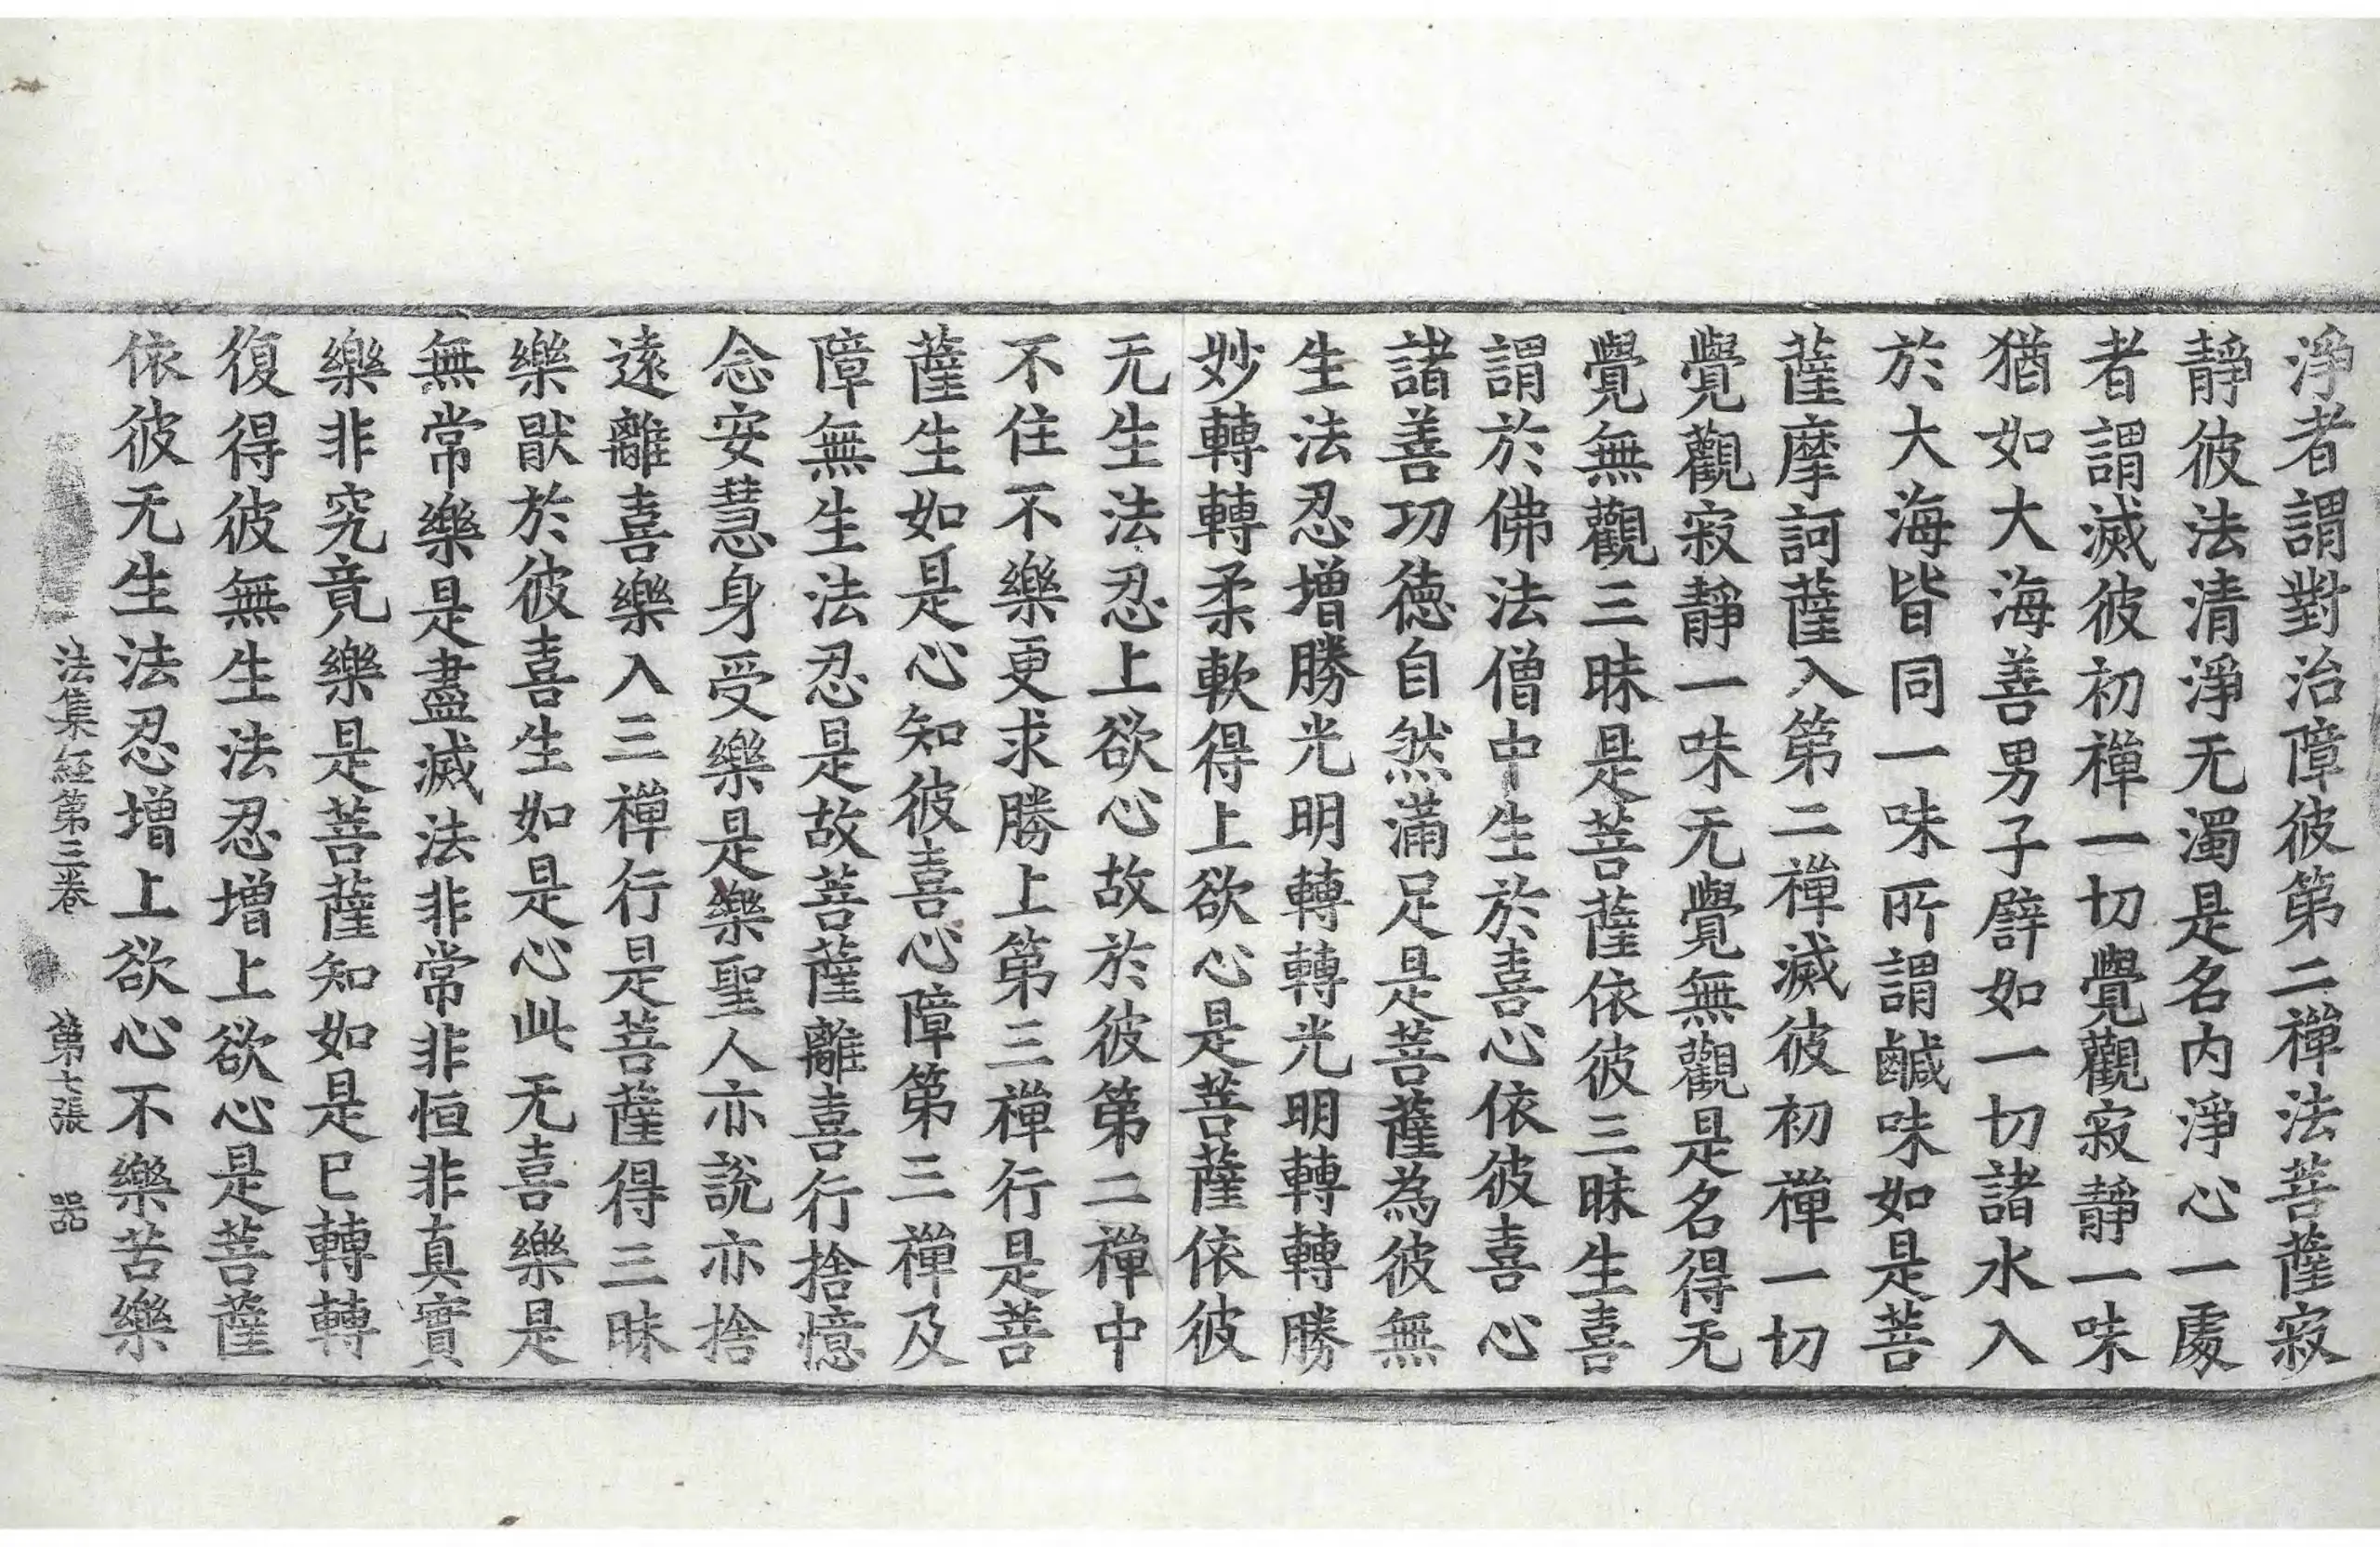 淨者謂對治障彼第二禪法菩薩寂
靜彼法清淨无濁是名内淨心一處
者謂滅彼初禪一切覺觀寂靜一味
猶如大海善男子譬如一切諸水入
於大海皆同一味所謂鹹味如是菩
薩摩訶薩入第二禪滅彼初禪一切
覺觀寂靜一味无覺無觀是名得无
覺無觀三昧是菩薩依彼三昧生喜
謂於佛法僧中生於喜心依彼喜心
諸善功德自然滿足是菩薩為彼無
生法忍增勝光明轉轉光明轉轉勝
妙轉轉柔軟得上欲心是菩薩依彼
无生法忍上欲心故於彼第二禪中
不住不樂更求勝上第三禪行是菩
薩生如是心知彼喜心障第三禪及
障無生法忍是故菩薩離喜行捨憶
念安慧身受樂是樂聖人亦說亦捨
遠離喜樂入三禪行是菩薩得三昧
樂猒於彼喜生如是心此无喜樂是
無常樂是盡滅法非常非恒非真實
樂非究竟樂是菩薩知如是已轉轉
復得彼無生法忍增上欲心是菩薩
依彼无生法忍增上欲心不樂苦樂
法集經第三卷 第七張 器